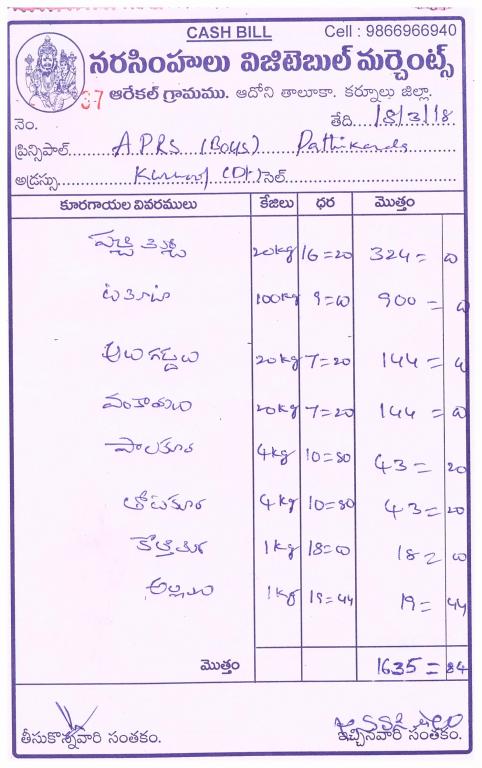 CASH BILL Cell : 9866966940
నరసింహులు విజిటెబుల్ మర్చెంట్స్
37 ఆరేకల్ గ్రామము. ఆదోని తాలూకా. కర్నూలు జిల్లా.
నెం. తేది. 18/3/18
ప్రిన్సిపాల్ A.P.R.S (Boys) Pathikonda
అడ్రస్సు Kurnool (Dt) సెల్
కూరగాయల వివరములు కేజిలు ధర మొత్తం
పచ్చి మిర్చి 20kg 16=20 324=
టమోటా 100kg 9=00 900=
ఆలుగడ్డలు 20kg 7=20 144=
వంకాయలు 20kg 7=20 144=
పాలకూర 4kg 10=80 43=20
తోటకూర 4kg 10=80 43=20
కొత్తిమీర 1kg 18=00 18=00
అల్లము 1kg 19=44 19=44
మొత్తం 1635=84
తీసుకొన్నవారి సంతకం. ఇచ్చినవారి సంతకం.